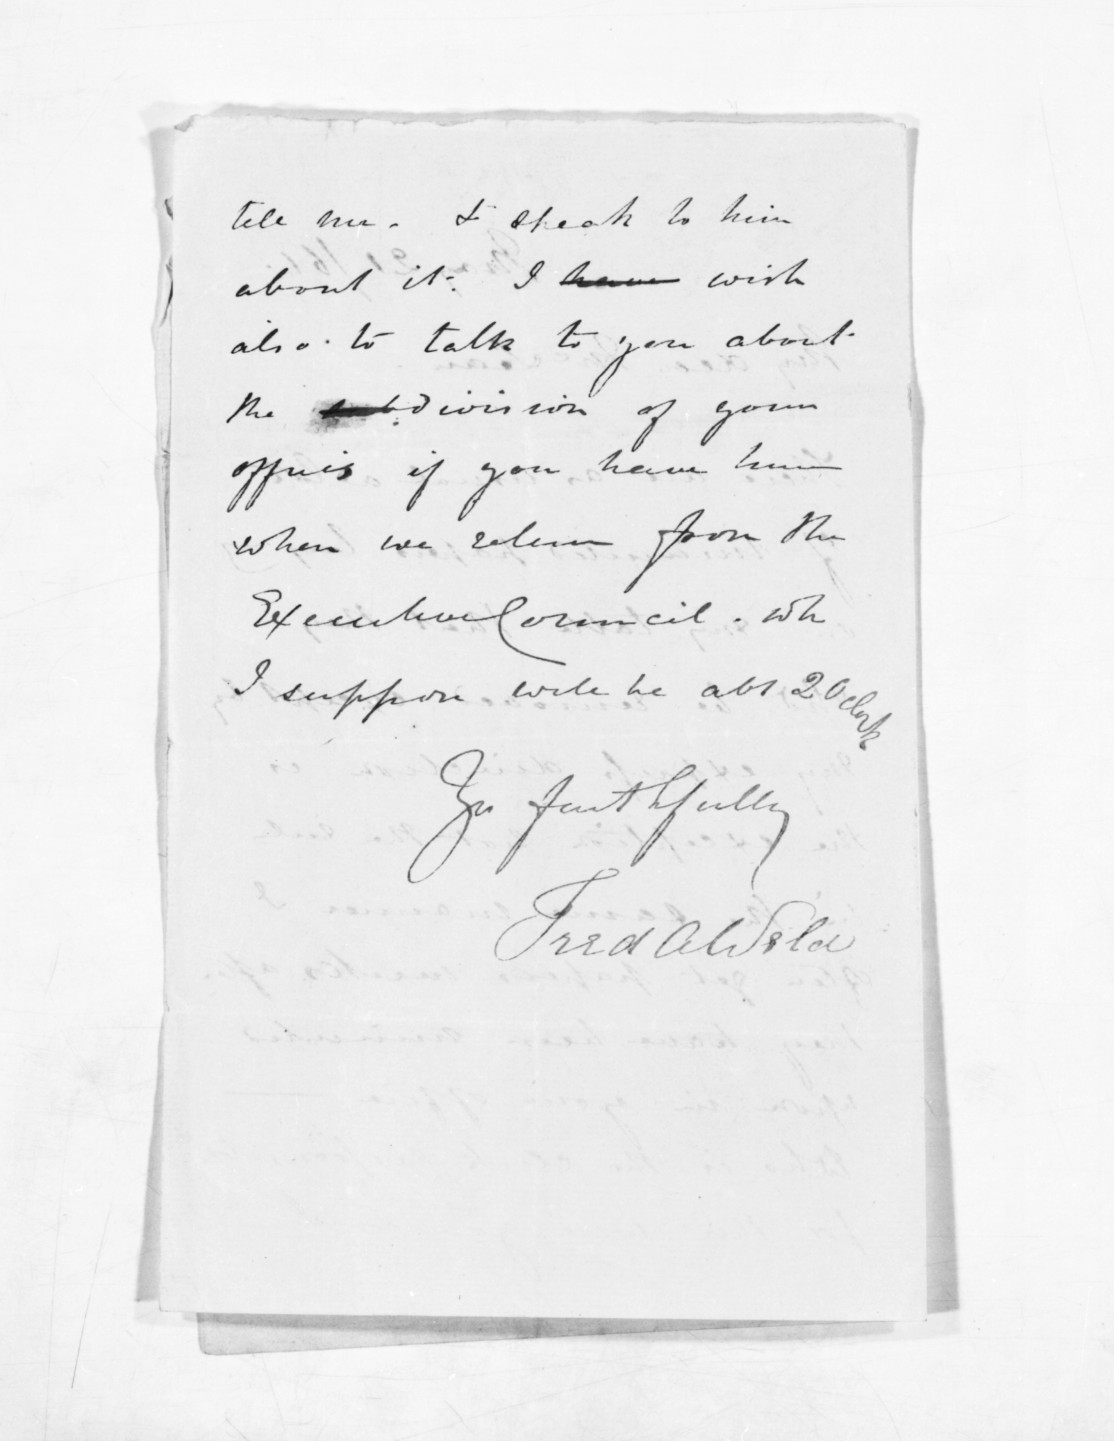 tell me. & speak to him
about it. I have wish
also to talk to you about
the subdivision of your
offices if you have time
when we return from the
Executive Council. wh
I suppose will be abt 2 Oclock
Yrs faithfully
Fred A Weld